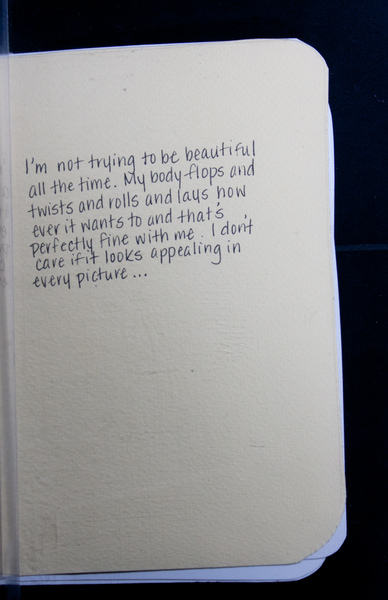 I'm not trying to be beautiful
all the time. My body flops and
twists and rolls and lays how
ever it wants to and that's
perfectly fine with me. I don't
care if it looks appealing in
every picture...